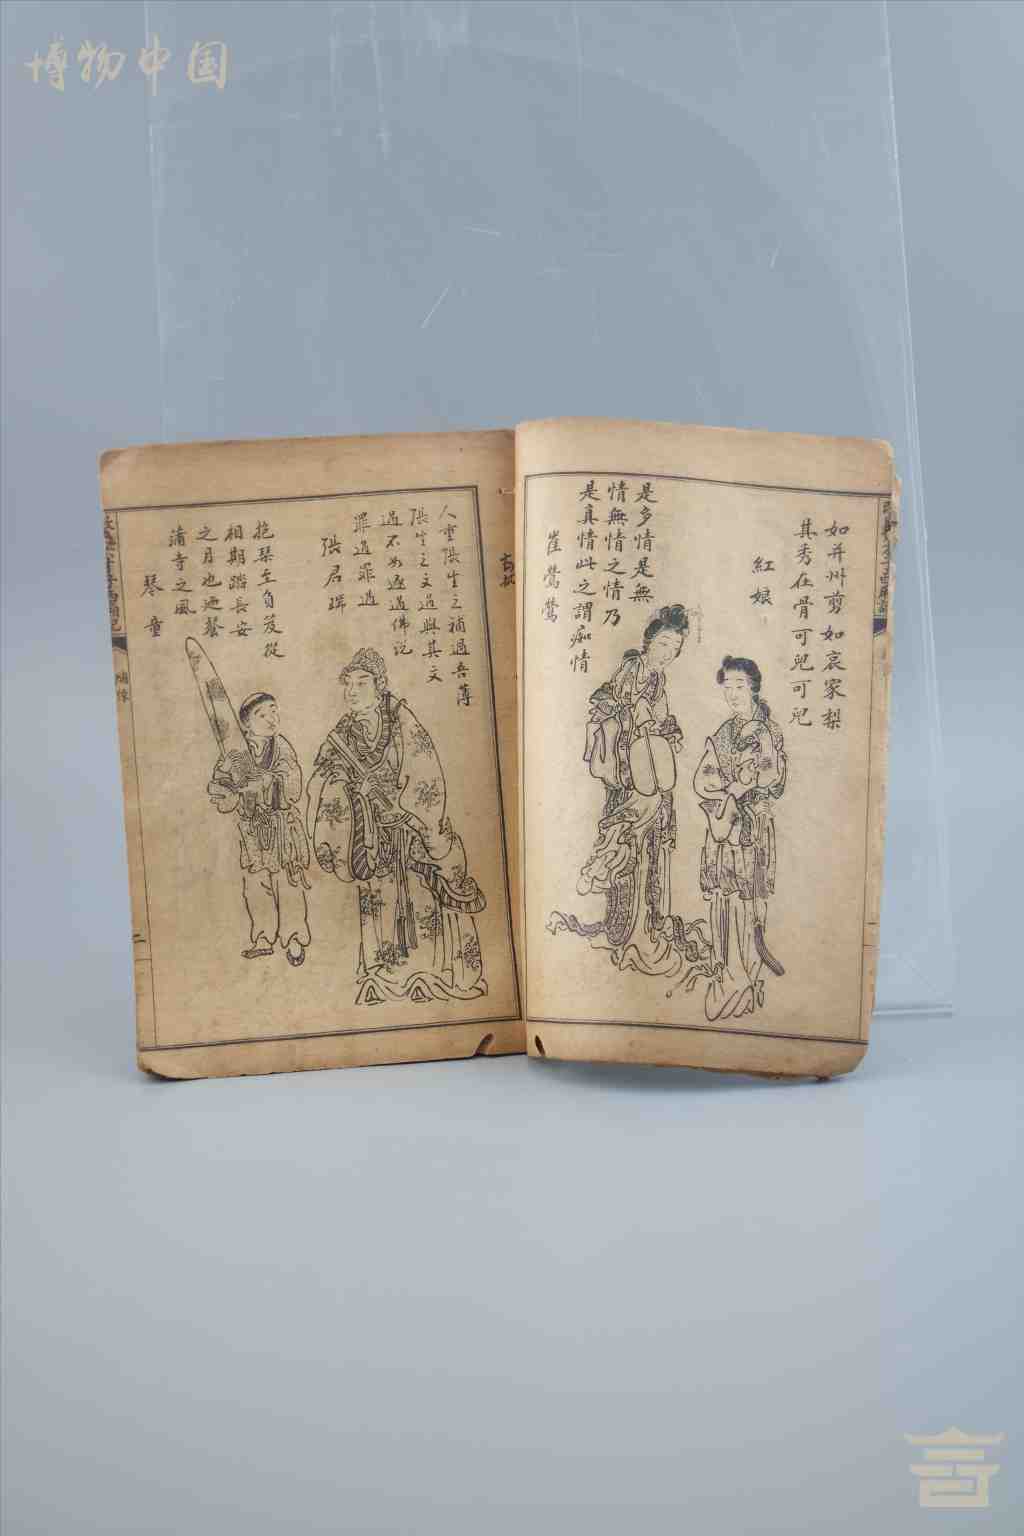 博物中国
如并州剪如哀家梨
其秀在骨可兒可兒
紅娘
是多情是無
情無情之情乃
是真情此之謂痴情
崔鶯鶯
人重張生之補過吾薄
張生之文過與其文
過不如遂過佛說
罪過罪過
張君瑞
抱琴至負笈從
相期踏長安
之月也迎
蒲寺之風
琴童
繡像
二